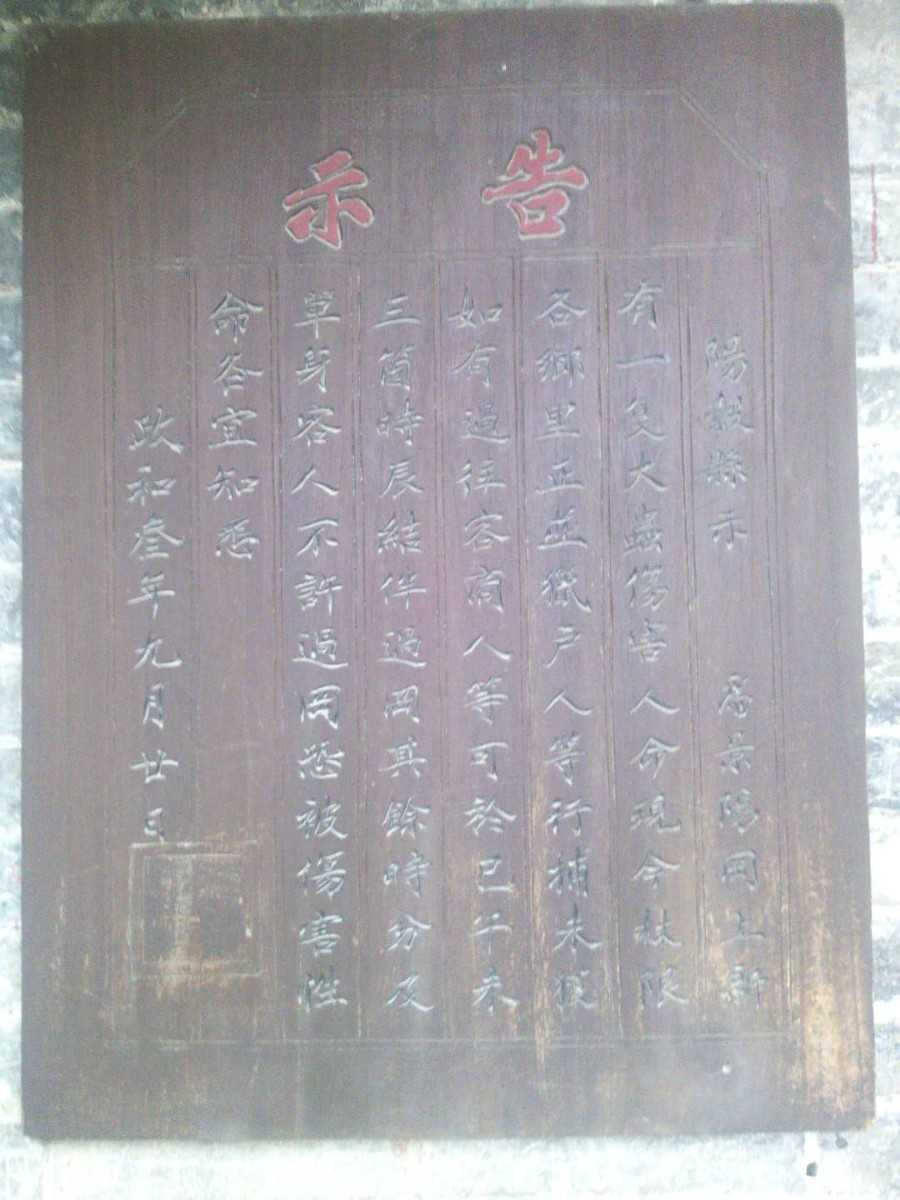 告示
陽穀縣示 為景陽岡上新
有一隻大蟲傷害人命現今杖限
各鄉里正並獵户人等行捕未獲
如有過往客商人等可於巳午未
三箇時辰結伴過岡其餘時分及
單身客人不許過岡恐被傷害性
命各宜知悉
政和叁年九月廿日